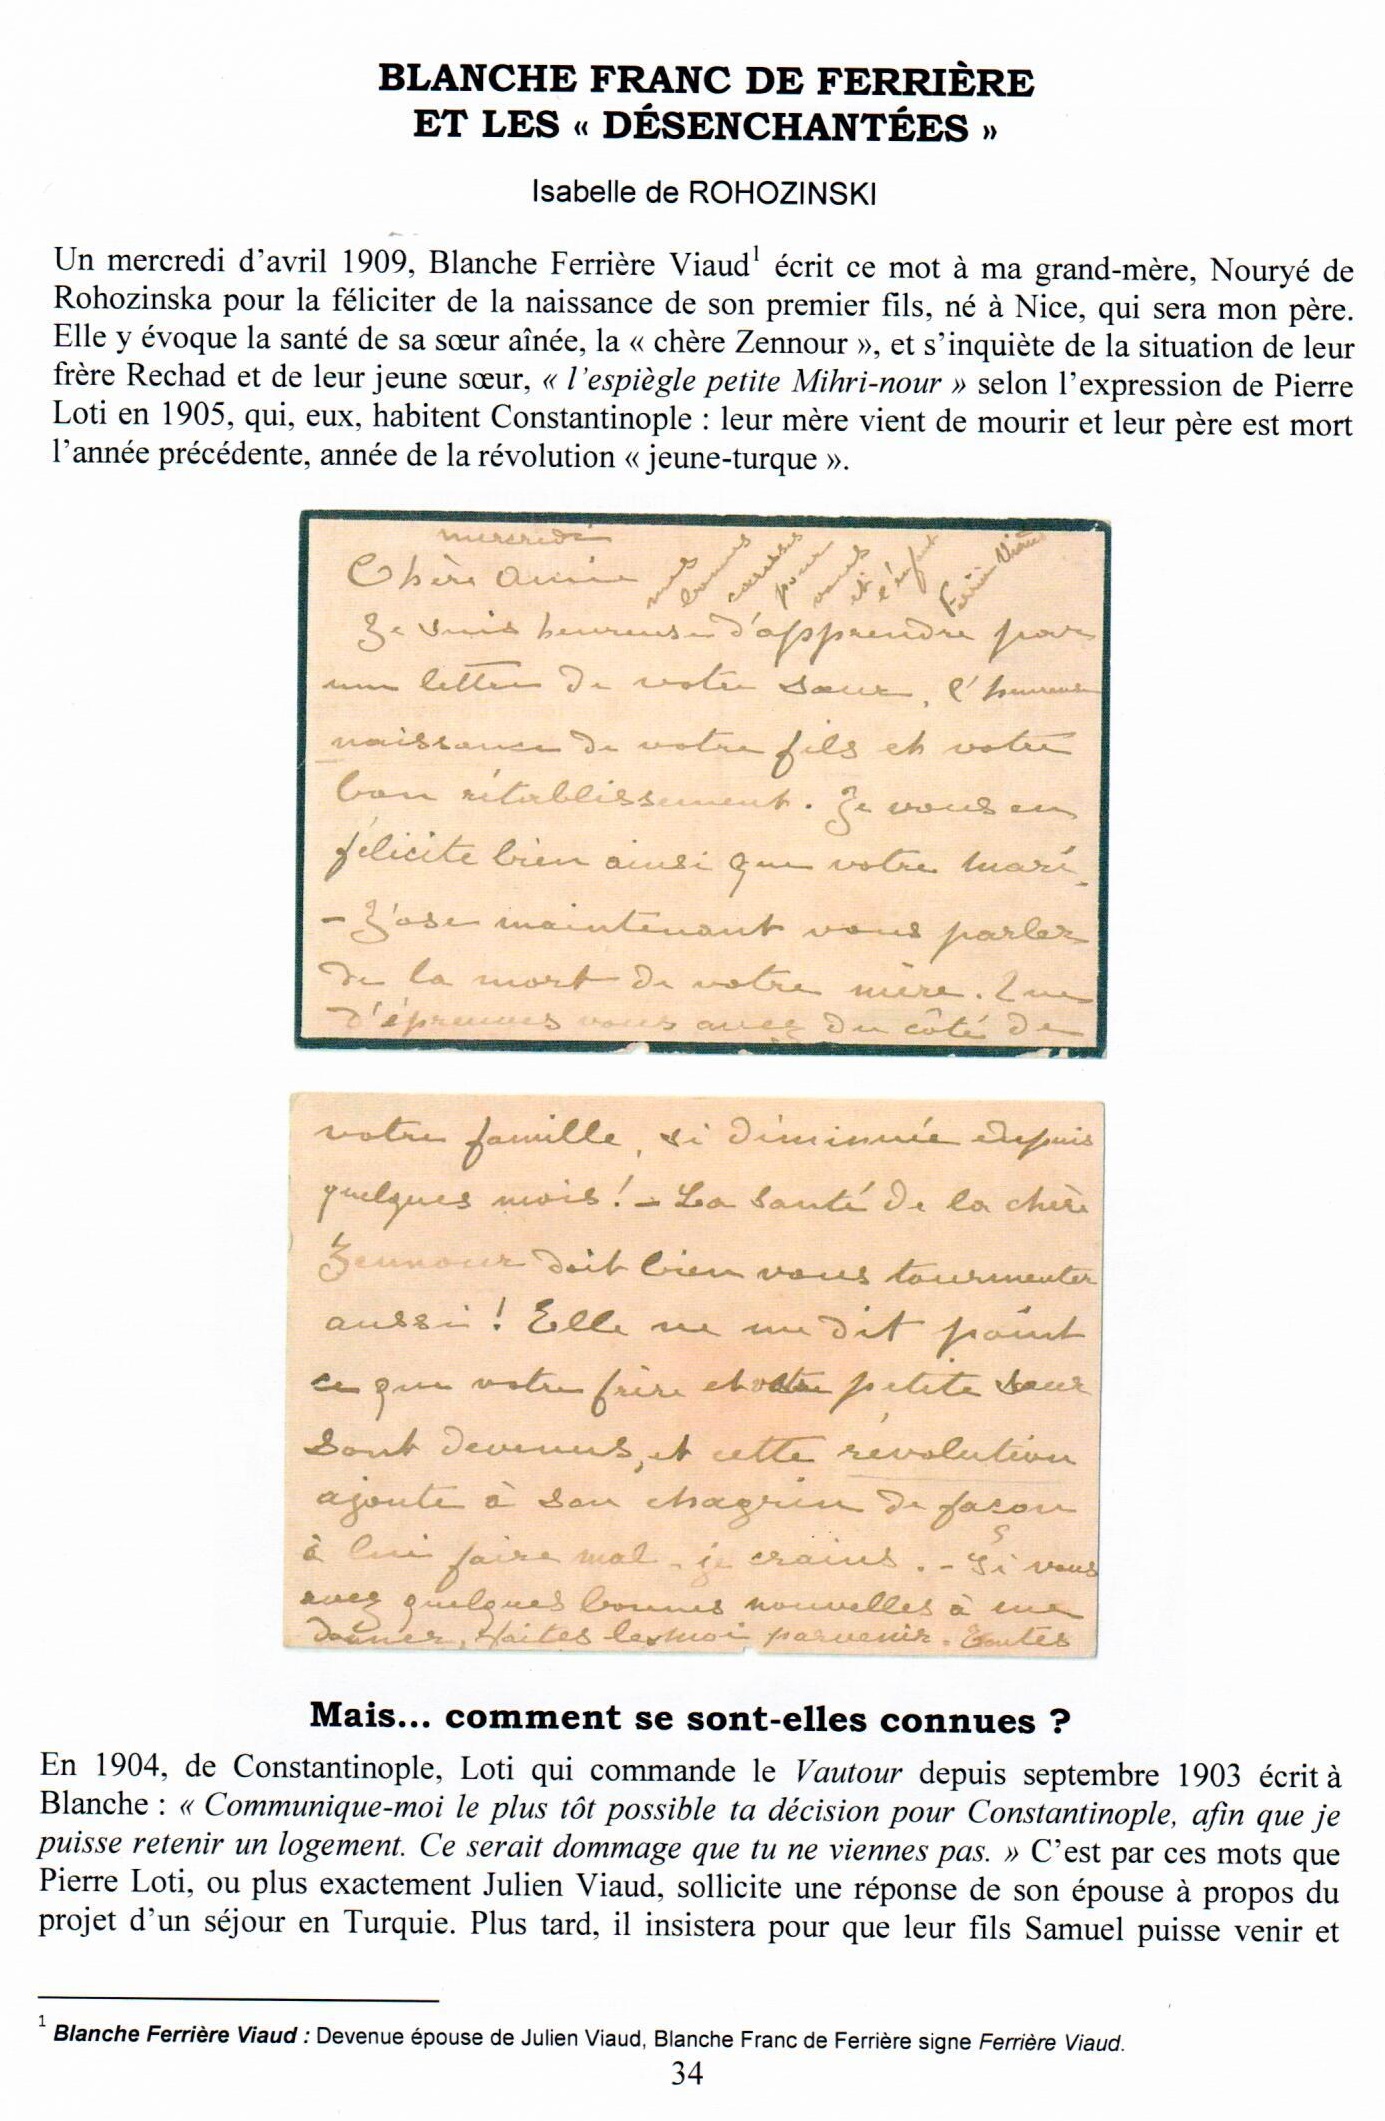 BLANCHE FRANC DE FERRIÈRE
ET LES « DÉSENCHANTÉES »
Isabelle de ROHOZINSKI
Un mercredi d'avril 1909, Blanche Ferrière Viaud¹ écrit ce mot à ma grand-mère, Nouryé de
Rohozinska pour la féliciter de la naissance de son premier fils, né à Nice, qui sera mon père.
Elle y évoque la santé de sa sœur aînée, la « chère Zennour », et s'inquiète de la situation de leur
frère Rechad et de leur jeune sœur, « l'espiègle petite Mihri-nour » selon l'expression de Pierre
Loti en 1905, qui, eux, habitent Constantinople : leur mère vient de mourir et leur père est mort
l'année précédente, année de la révolution « jeune-turque ».
mercredi
Chère Amie
Je suis heureuse d'apprendre par
une lettre de votre sœur, l'heureuse
naissance de votre fils et votre
bon rétablissement. Je vous en
félicite bien ainsi que votre mari.
- J'ose maintenant vous parler
de la mort de votre mère. Que
d'épreuves vous avez du côté de
votre famille, si diminuée depuis
quelques mois ! - La santé de la chère
Zennour doit bien vous tourmenter
aussi ! Elle ne me dit point
ce que votre frère et votre petite sœur
sont devenus, et cette révolution
ajoute à son chagrin de façon
à lui faire mal - je crains. - Si vous
avez quelques bonnes nouvelles à me
donner, faites les moi parvenir. Toutes
mes bonnes caresses pour vous et l'enfant
Ferrière Viaud
Mais... comment se sont-elles connues ?
En 1904, de Constantinople, Loti qui commande le Vautour depuis septembre 1903 écrit à
Blanche : « Communique-moi le plus tôt possible ta décision pour Constantinople, afin que je
puisse retenir un logement. Ce serait dommage que tu ne viennes pas. » C'est par ces mots que
Pierre Loti, ou plus exactement Julien Viaud, sollicite une réponse de son épouse à propos du
projet d'un séjour en Turquie. Plus tard, il insistera pour que leur fils Samuel puisse venir et
¹ Blanche Ferrière Viaud : Devenue épouse de Julien Viaud, Blanche Franc de Ferrière signe Ferrière Viaud.
34